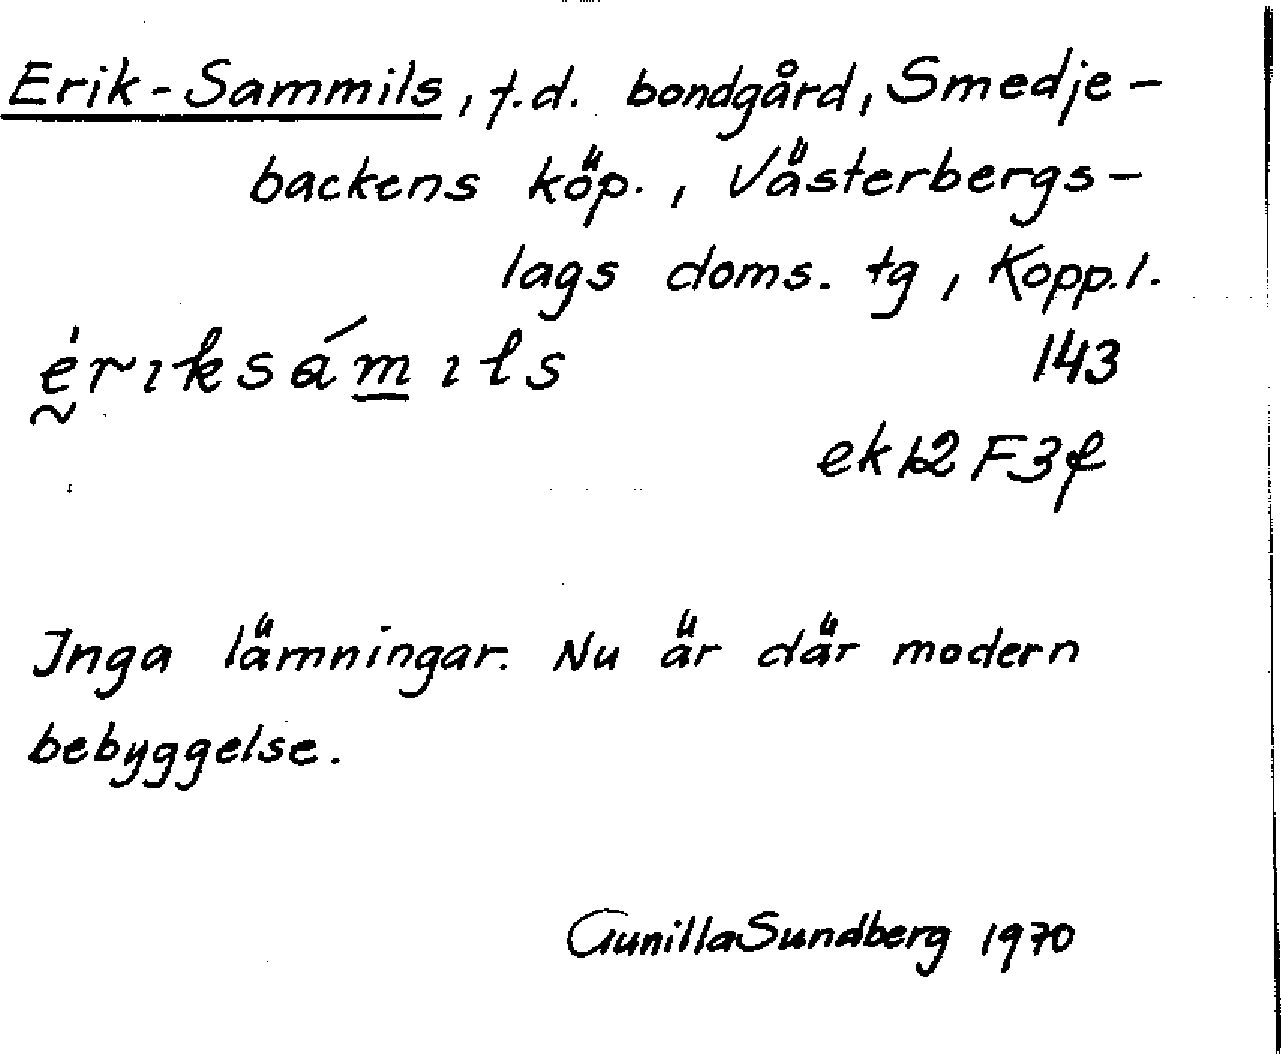 Erik-Sammils, f.d. bondgård, Smedje-
backens köp., Västerbergs-
lags doms. tg, Kopp.l.
ėrıksámıls 143
ek 12 F3f
Inga lämningar. Nu är där modern
bebyggelse.
Gunilla Sundberg 1970